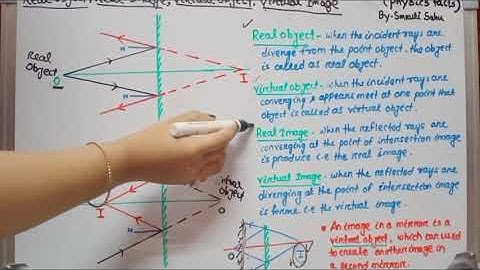 Real Object, Real Image, Virtual Object, Virtual Image
(Physics facts)
By- Smruti Sahu
Real
Object
O
N
N
I
Real object - when the incident rays are
diverge from the point object. the object
is called as real object.
Virtual object - when the incident rays are
converging & appears meet at one point that
object is called as virtual object.
Real Image - when the reflected rays are
converging at the point of intersection image
is produce i.e the real image.
Virtual Image - when the reflected rays are
diverging at the point of intersection image
is forme i.e the virtual image.
I
N
Object
O
I
O
• An image in a mirror is a
virtual object, which can used
to create another image in
a second mirror.